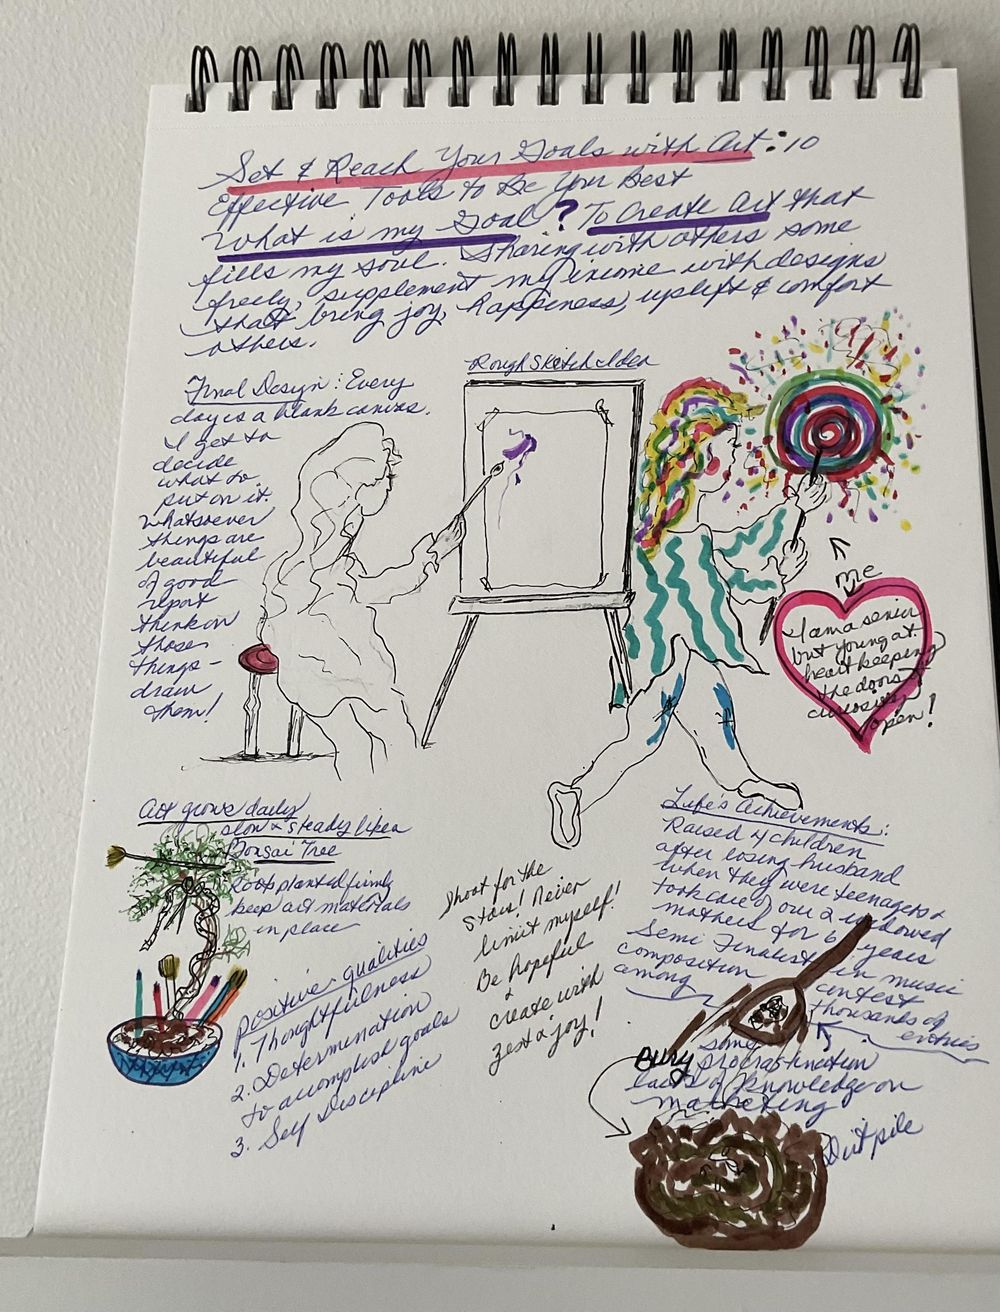 Set & Reach Your Goals with Art: 10
Effective Tools to Be Your Best
What is my Goal? To Create Art that
fills my soul. Sharing with others some
freely, supplement my income with designs
that bring joy, happiness, uplift & comfort
others.
Rough Sketch Idea
Final Design: Every
day is a blank canvas.
I get to
decide
what to
put on it.
Whatsoever
things are
beautiful
of good
report
think on
those
things -
draw
them!
me
I am a senior
but young at
heart keeping
the doors of
curiosity
open!
Art grows daily
slow & steady like a
Bonsai Tree
Root planted firmly
keep art materials
in place
Positive qualities
1. Thoughtfulness
2. Determination
to accomplish goals
3. Self Discipline
Shoot for the
Stars! Never
limit myself!
Be hopeful
&
create with
zest & joy!
Life's Achievements:
Raised 4 children
after losing husband
when they were teenagers &
took care of our 2 widowed
mothers for 6 years
Semi Finalist in music
composition contest
among thousands of
entries
Bury some procrastination
lack of knowledge on
marketing
Dirt pile